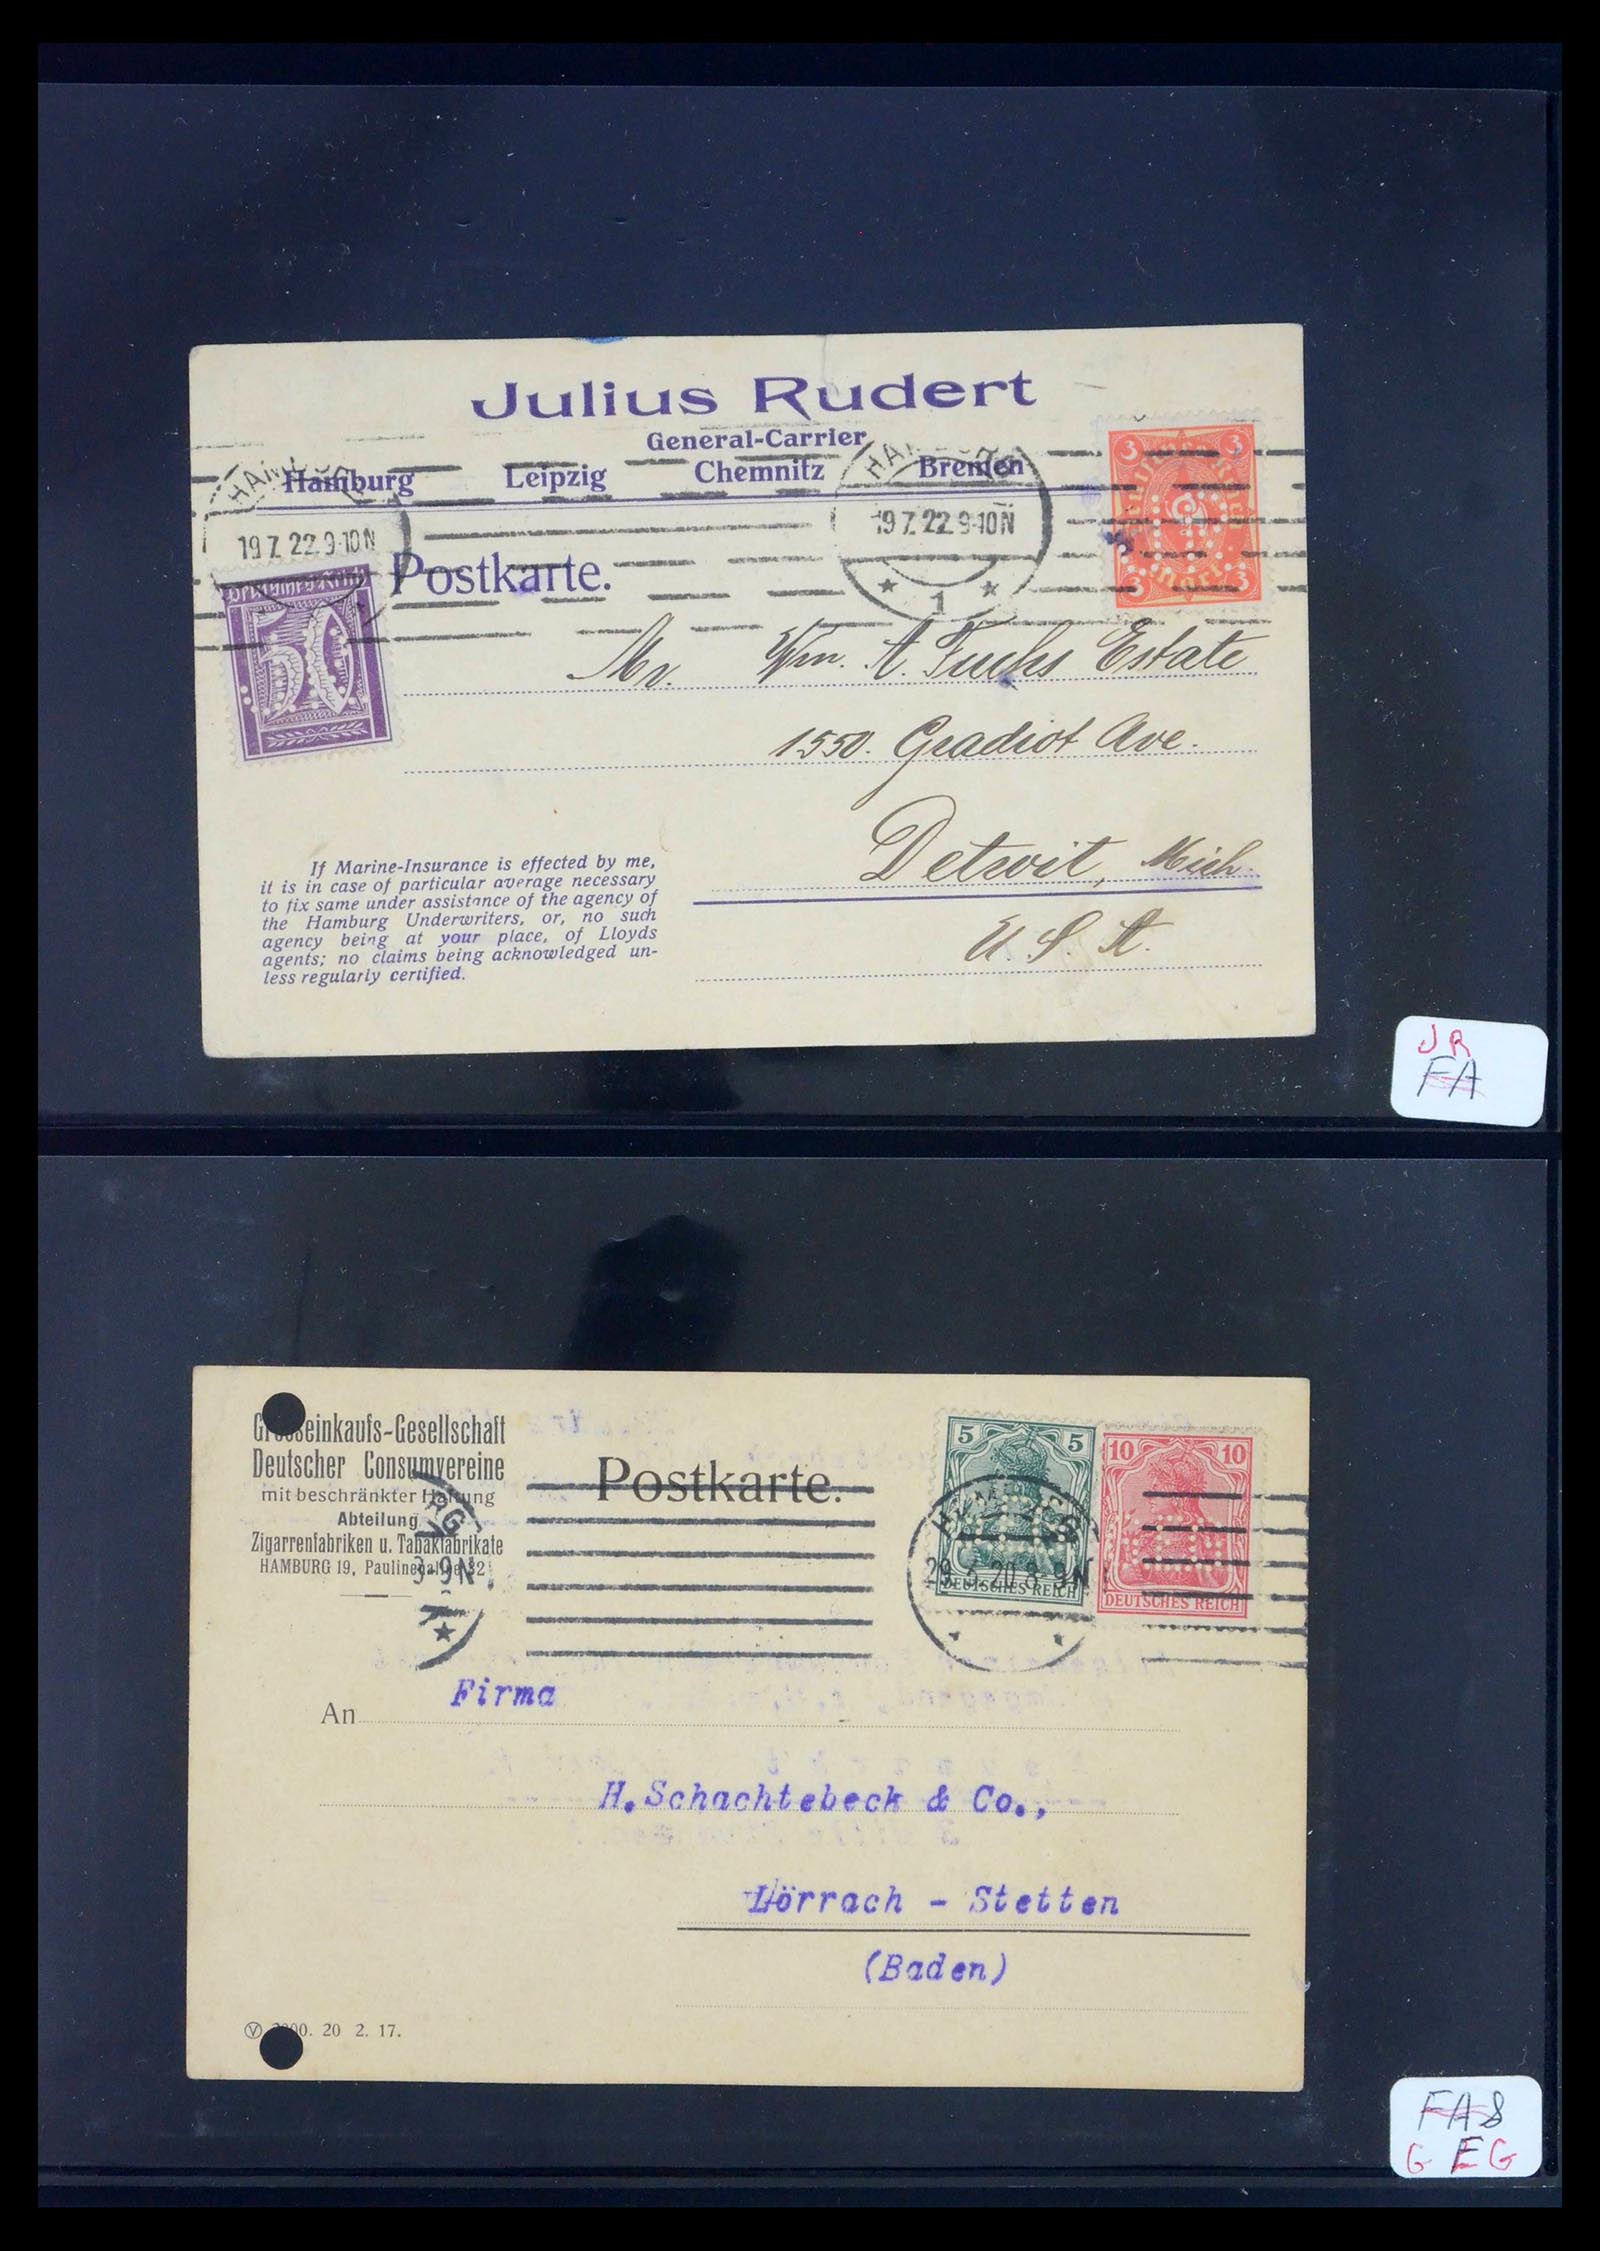 Julius Rudert
General-Carrier
Hamburg Leipzig Chemnitz Bremen
HAMBURG
19.7.22.9-10N
HAMBURG
19.7.22.9-10N
* 1 *
3 3
3 3
Postkarte.
Deutsches Reich
50
Mr. Wm. A. Fuchs Estate
1550. Gradiot Ave.
Detroit, Mich.
U. S. A.
If Marine-Insurance is effected by me,
it is in case of particular average necessary
to fix same under assistance of the agency of
the Hamburg Underwriters, or, no such
agency being at your place, of Lloyds
agents; no claims being acknowledged un-
less regularly certified.
JR
FA
Grosseinkaufs-Gesellschaft
Deutscher Consumvereine
mit beschränkter Haftung
Abteilung
Zigarrenfabriken u. Tabakfabrikate
HAMBURG 19, Paulinenallee 32
Postkarte.
5 5
DEUTSCHES REICH
10 10
DEUTSCHES REICH
HAMBURG
8-9N
An Firma
H. Schachtebeck & Co.,
Lörrach - Stetten
(Baden)
00. 20 2. 17.
FA8
GEG